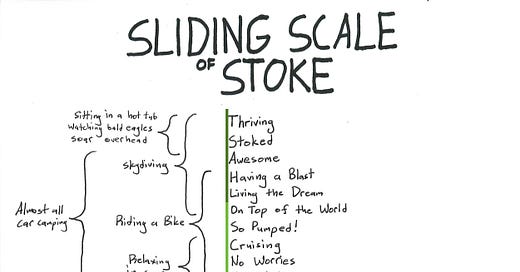 SLIDING SCALE
OF STOKE
Sitting in a hot tub
Watching bald eagles
soar overhead
Skydiving
Almost all
car camping
Riding a Bike
Relaxing
Thriving
Stoked
Awesome
Having a Blast
Living the Dream
On Top of the World
So Pumped!
Cruising
No Worries